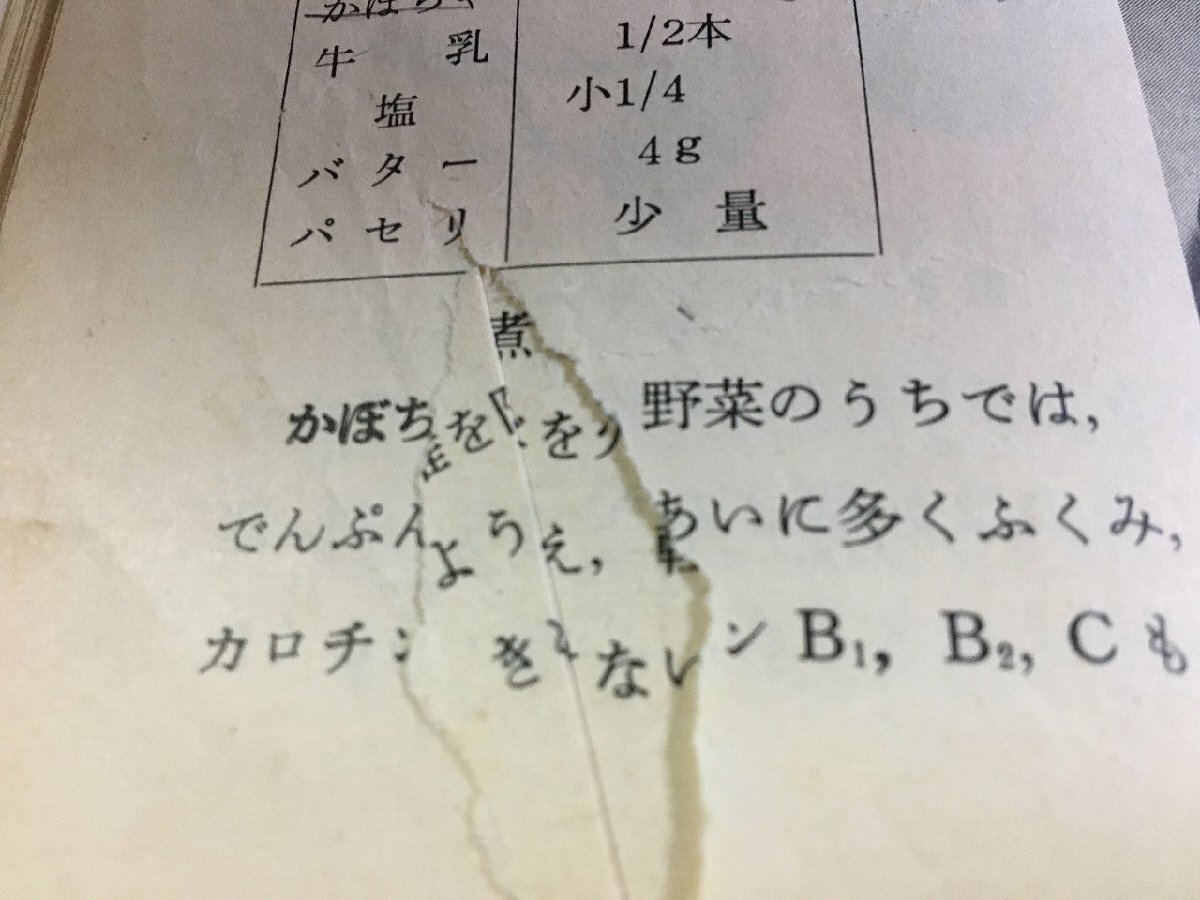 かぼち
牛乳 1/2本
塩 小1/4
バター 4g
パセリ 少量
煮
かぼち を を 野菜のうちでは,
でんぷん よ う え, あいに多くふくみ,
カロチ き ない ン B₁, B₂, Cも